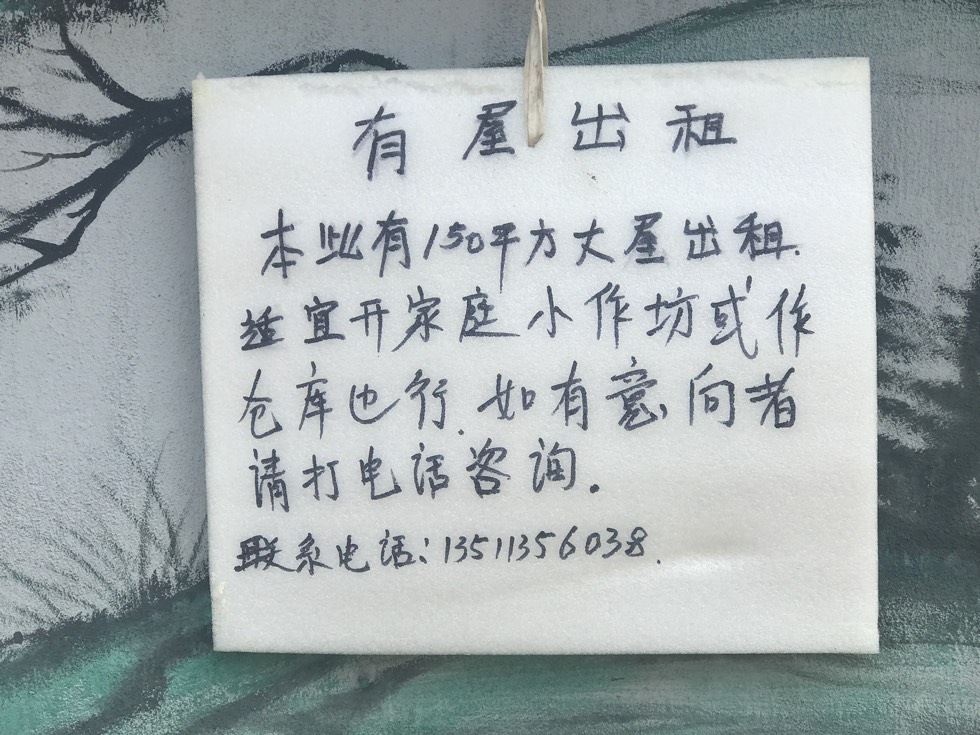 有屋出租
本此有150平方大屋出租.
适宜开家庭小作坊或作
仓库也行.如有意向者
请打电话咨询.
联系电话:13511356038.